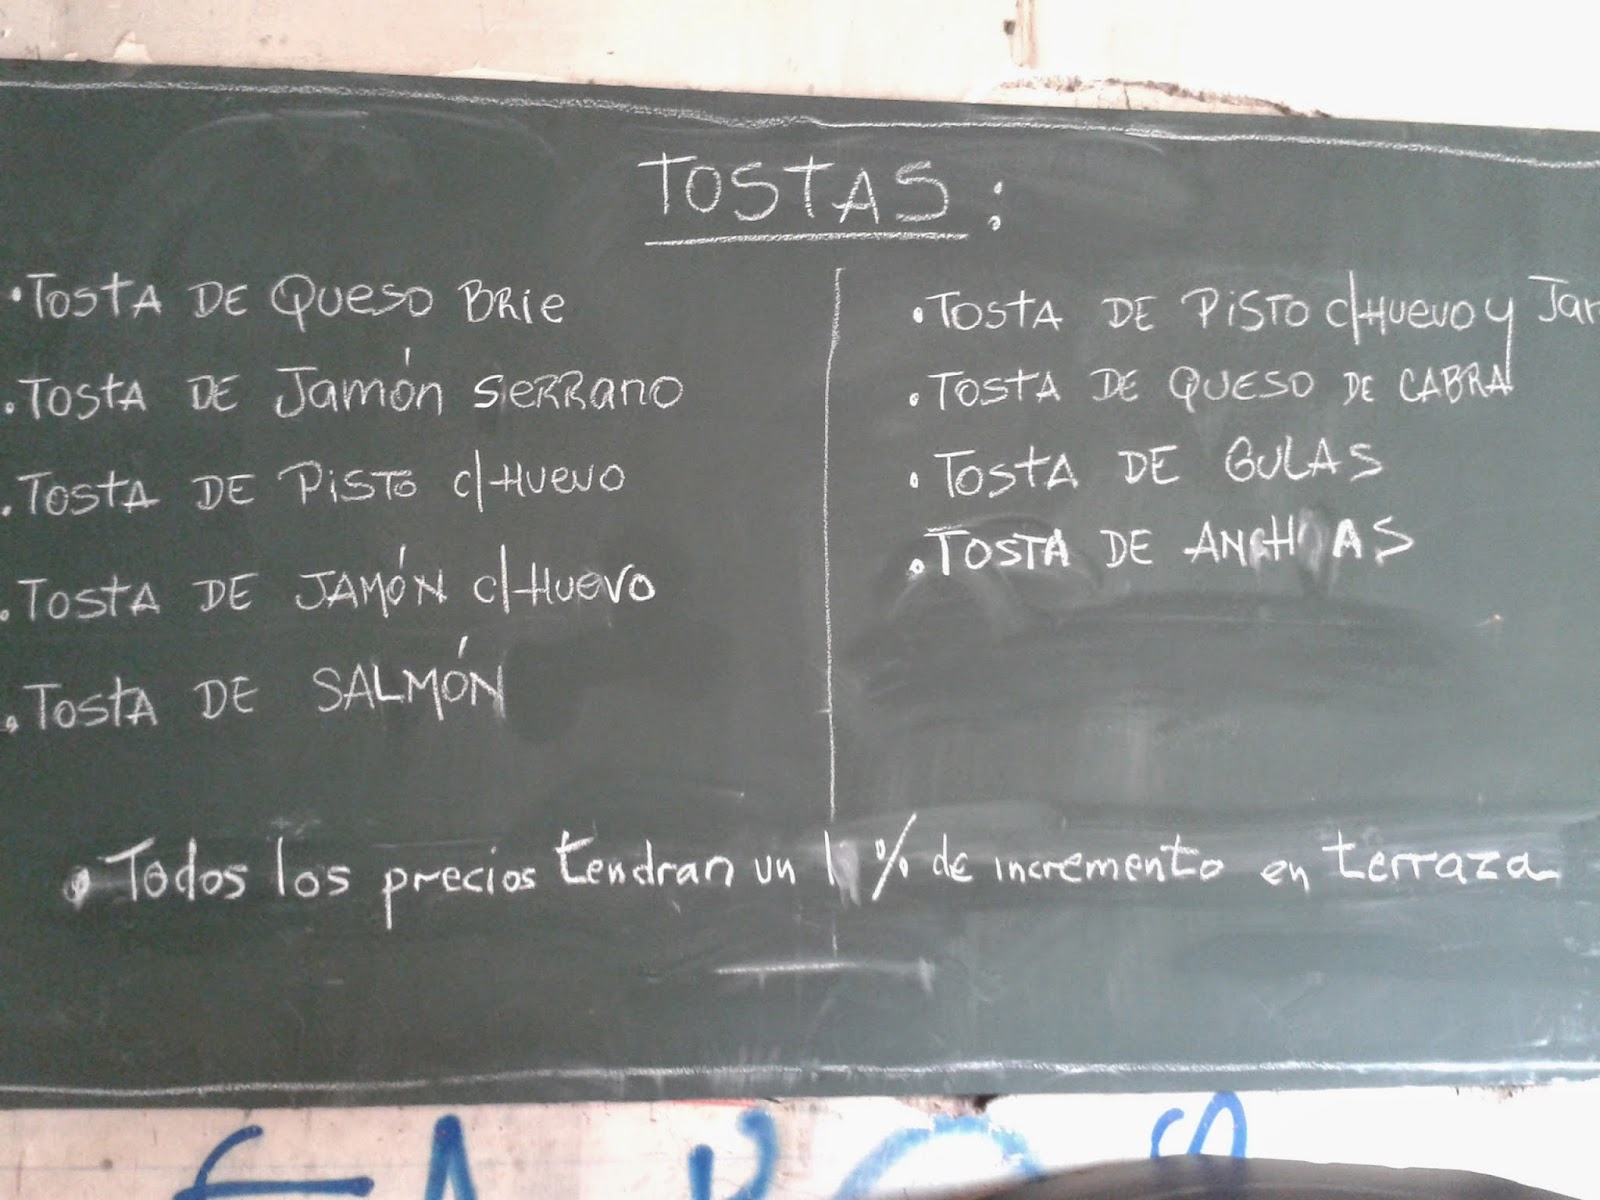 TOSTAS:
• TOSTA DE QUESO BRIE
• TOSTA DE JAMÓN SERRANO
• TOSTA DE PISTO C/HUEVO
• TOSTA DE JAMÓN C/HUEVO
• TOSTA DE SALMÓN
• TOSTA DE PISTO C/HUEVO Y
• TOSTA DE QUESO DE CABRA
• TOSTA DE GULAS
• TOSTA DE ANCHOAS
• Todos los precios tendran un % de incremento en terraza